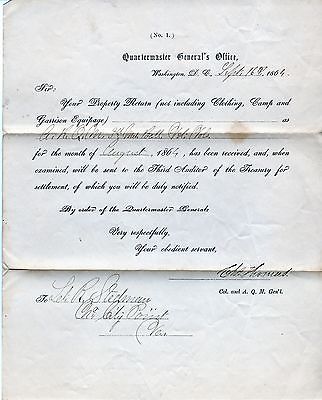 (No. 1.)
Quartermaster General's Office,
Washington, D. C. Sept. 16th, 1864
Sir:
Your Property Return (not including Clothing, Camp and
Garrison Equipage) as
for the month of August, 1864, has been received, and, when
examined, will be sent to the Third Auditor of the Treasury for
settlement, of which you will be duly notified.
By order of the Quartermaster General:
Very respectfully,
Your obedient servant,
Chs Thomas
Col. and A. Q. M. Gen'l.
To Lt. R.
City Point
Va